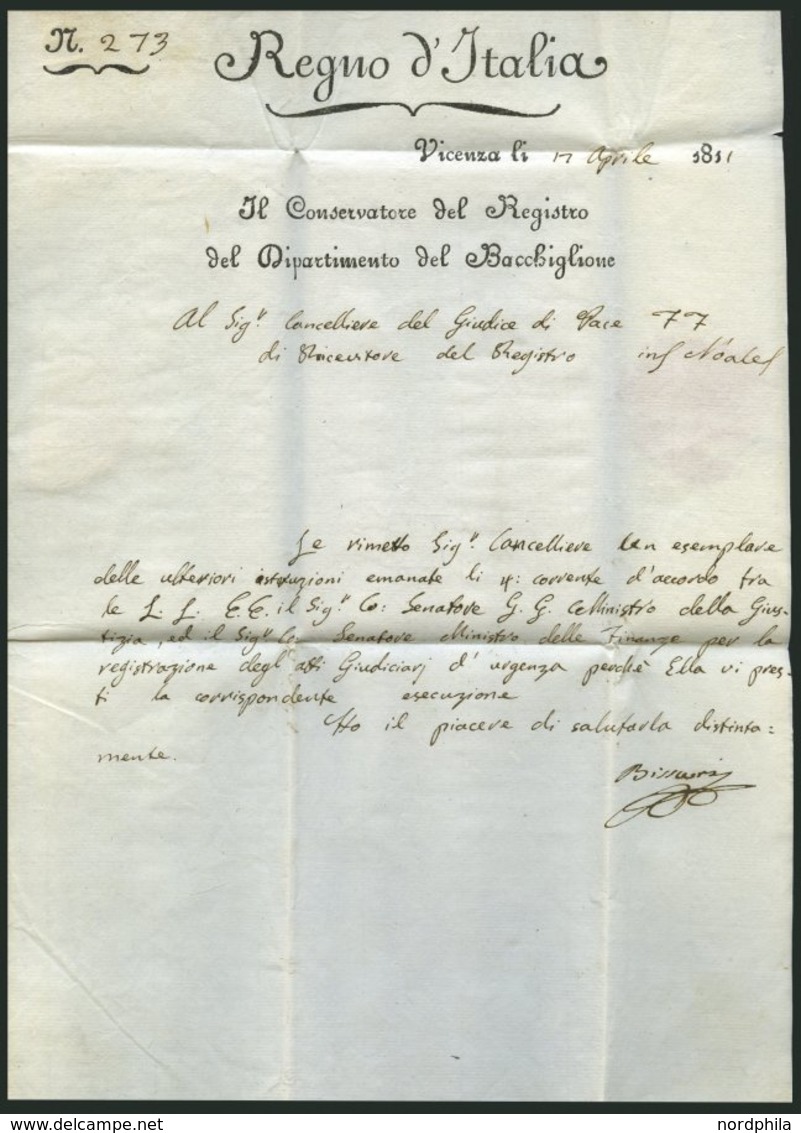 N. 273
Regno d'Italia
Vicenza li 17 Aprile 1811
Il Conservatore del Registro
del Dipartimento del Bacchiglione
Al Sig.r Cancelliere del Giudice di Pace
di Ricevitore del Registro in Noale
Le rimetto Sig.r Cancelliere un esemplare
delle ulteriori istruzioni emanate li 4: corrente d'accordo fra
le L. L. E. E. il Sig.r Co: Senatore G. G. Ministro della Gius-
tizia, ed il Sig.r Co: Senatore Ministro delle Finanze per la
registrazione degl'atti Giudiciarj d'urgenza perchè Ella vi pres-
ti la corrispondente esecuzione
Ho il piacere di salutarla distinta=
mente.
delcampe.net
nordphila